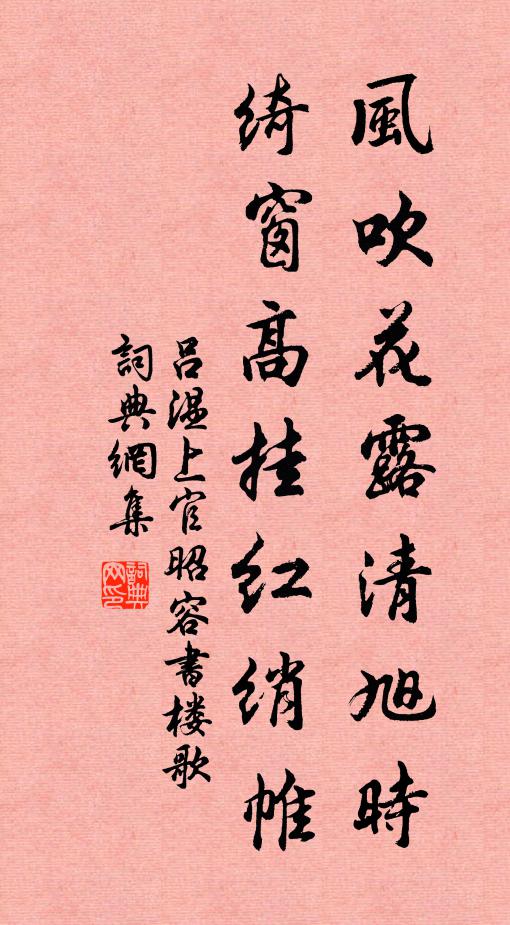 風吹花露清旭時
綺窗高挂紅綃帷
呂溫上官昭容書楼歌
詞典網集
詞典网印